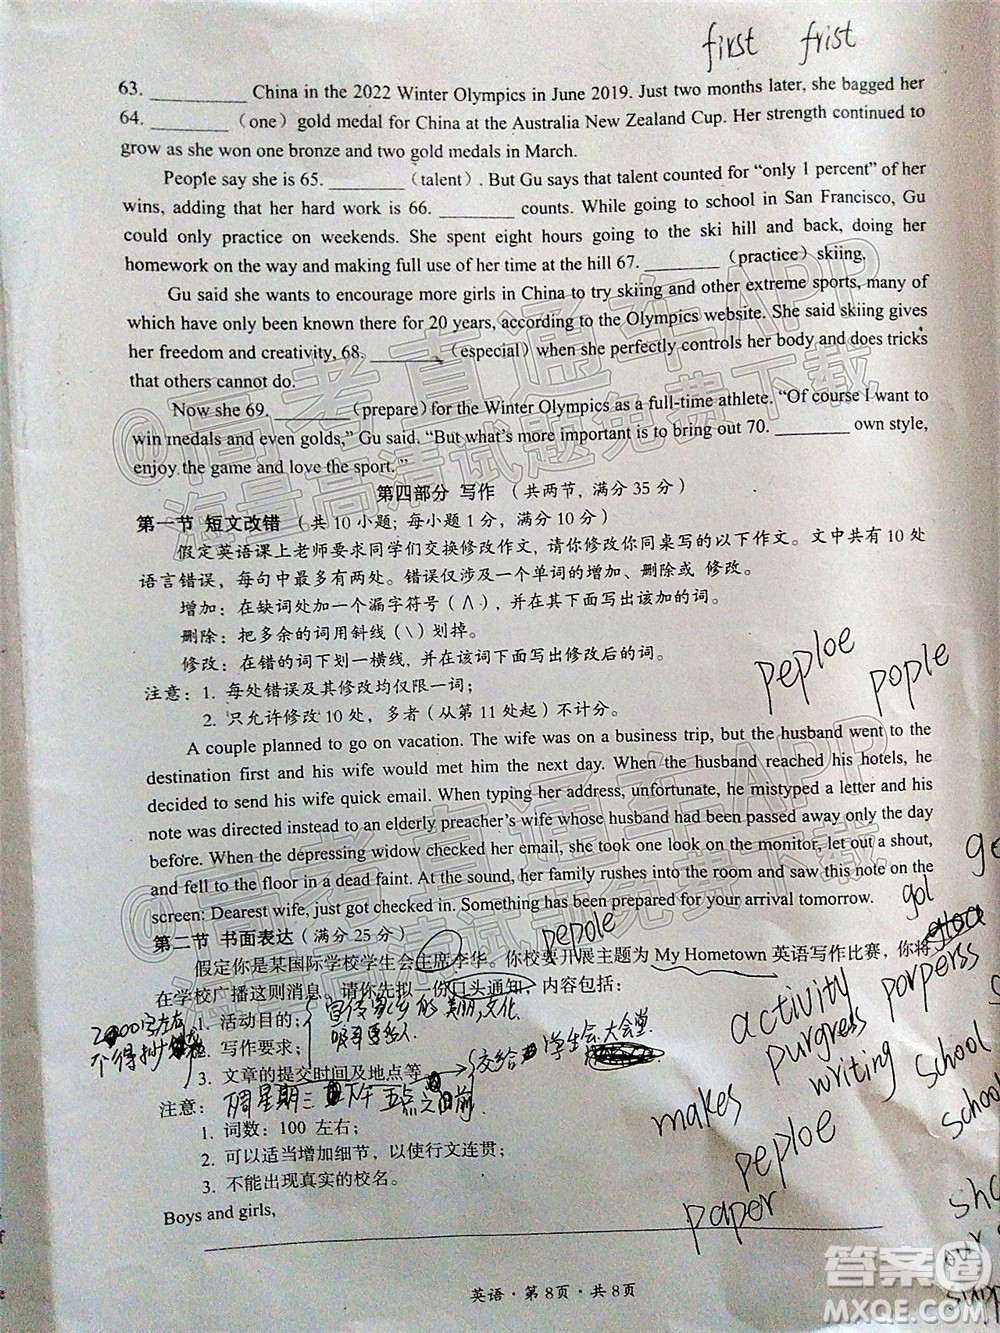 first frist
63. __________ China in the 2022 Winter Olympics in June 2019. Just two months later, she bagged her
64. ________（one）gold medal for China at the Australia New Zealand Cup. Her strength continued to
grow as she won one bronze and two gold medals in March.
People say she is 65. ________（talent）. But Gu says that talent counted for “only 1 percent” of her
wins, adding that her hard work is 66. ________ counts. While going to school in San Francisco, Gu
could only practice on weekends. She spent eight hours going to the ski hill and back, doing her
homework on the way and making full use of her time at the hill 67. ________（practice）skiing.
Gu said she wants to encourage more girls in China to try skiing and other extreme sports, many of
which have only been known there for 20 years, according to the Olympics website. She said skiing gives
her freedom and creativity, 68. ________（especial）when she perfectly controls her body and does tricks
that others cannot do.
Now she 69. ________（prepare）for the Winter Olympics as a full-time athlete. “Of course I want to
win medals and even golds,” Gu said. “But what's more important is to bring out 70. ________ own style,
enjoy the game and love the sport.”
第四部分 写作 （共两节，满分 35 分）
第一节 短文改错 （共 10 小题；每小题 1 分，满分 10 分）
假定英语课上老师要求同学们交换修改作文，请你修改你同桌写的以下作文。文中共有 10 处
语言错误，每句中最多有两处。错误仅涉及一个单词的增加、删除或 修改。
增加：在缺词处加一个漏字符号（∧），并在其下面写出该加的词。
删除：把多余的词用斜线（\）划掉。
修改：在错的词下划一横线，并在该词下面写出修改后的词。
注意：1. 每处错误及其修改均仅限一词；
2. 只允许修改 10 处，多者（从第 11 处起）不计分。
peploe
pople
A couple planned to go on vacation. The wife was on a business trip, but the husband went to the
destination first and his wife would met him the next day. When the husband reached his hotels, he
decided to send his wife quick email. When typing her address, unfortunate, he mistyped a letter and his
note was directed instead to an elderly preacher's wife whose husband had been passed away only the day
before. When the depressing widow checked her email, she took one look on the monitor, let out a shout,
and fell to the floor in a dead faint. At the sound, her family rushes into the room and saw this note on the
screen: Dearest wife, just got checked in. Something has been prepared for your arrival tomorrow.
第二节 书面表达（满分 25 分）
pepole
gol
假定你是某国际学校学生会主席李华。你校要开展主题为 My Hometown 英语写作比赛，你将
在学校广播这则消息，请你先拟一份口头通知，内容包括：
1. 活动目的；
2. 写作要求；
3. 文章的提交时间及地点等
宣传家乡的美丽,文化
交给 学生会大会堂.
周星期三 下午 五点之前
注意：
1. 词数：100 左右；
2. 可以适当增加细节，以使行文连贯；
3. 不能出现真实的校名。
Boys and girls,
activity porperss
purgress
writing school
makes
peploe
paper
英语·第 8页·共 8页
@高考直通车APP
海量高清试题免费下载
@高考直通车APP
海量高清试题免费下载
答案圈
MXQE.COM